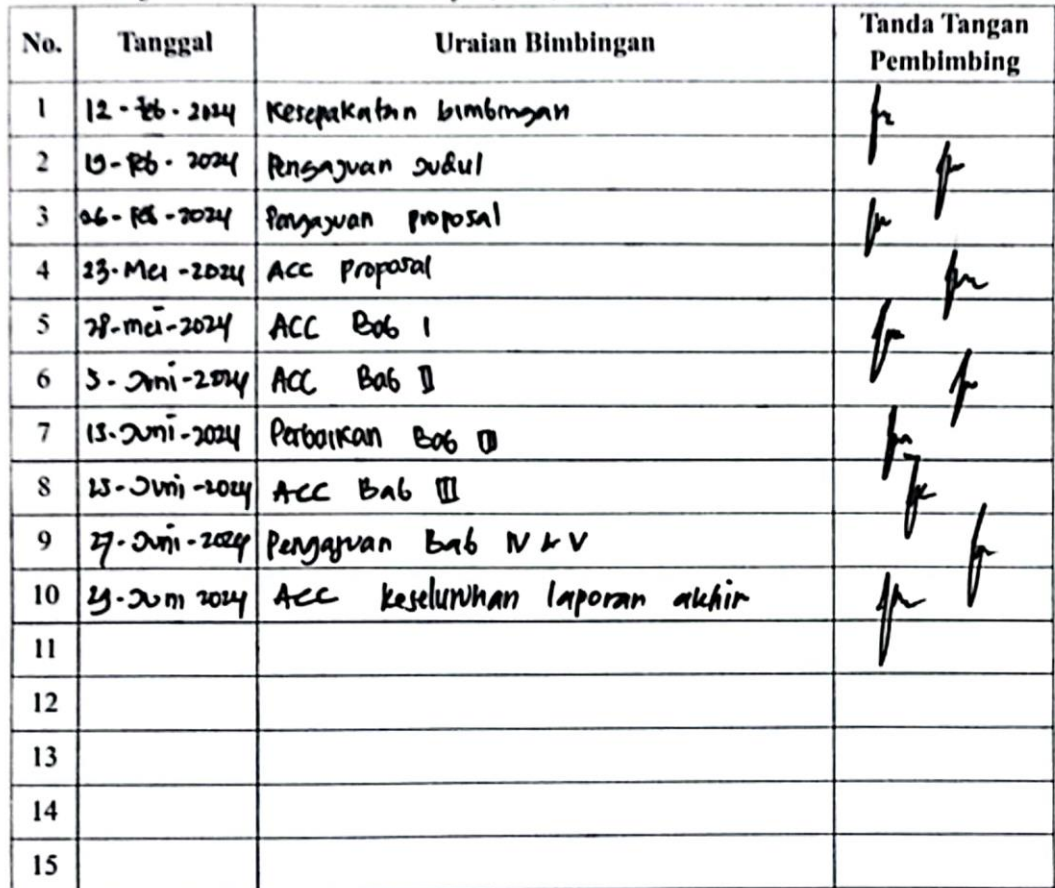 No. Tanggal Uraian Bimbingan Tanda Tangan Pembimbing
1 12 - Feb - 2024 Kesepakatan bimbingan
2 19 - Feb - 2024 Pengajuan Judul
3 26 - Feb - 2024 Pengajuan proposal
4 23 - Mei - 2024 ACC proposal
5 28 - mei - 2024 ACC Bab I
6 5 - Juni - 2024 ACC Bab II
7 15 - Juni - 2024 Perbaikan Bab III
8 25 - Juni - 2024 ACC Bab III
9 27 - Juni - 2024 Pengajuan Bab IV & V
10 29 - Juni 2024 ACC keseluruhan laporan akhir
11
12
13
14
15